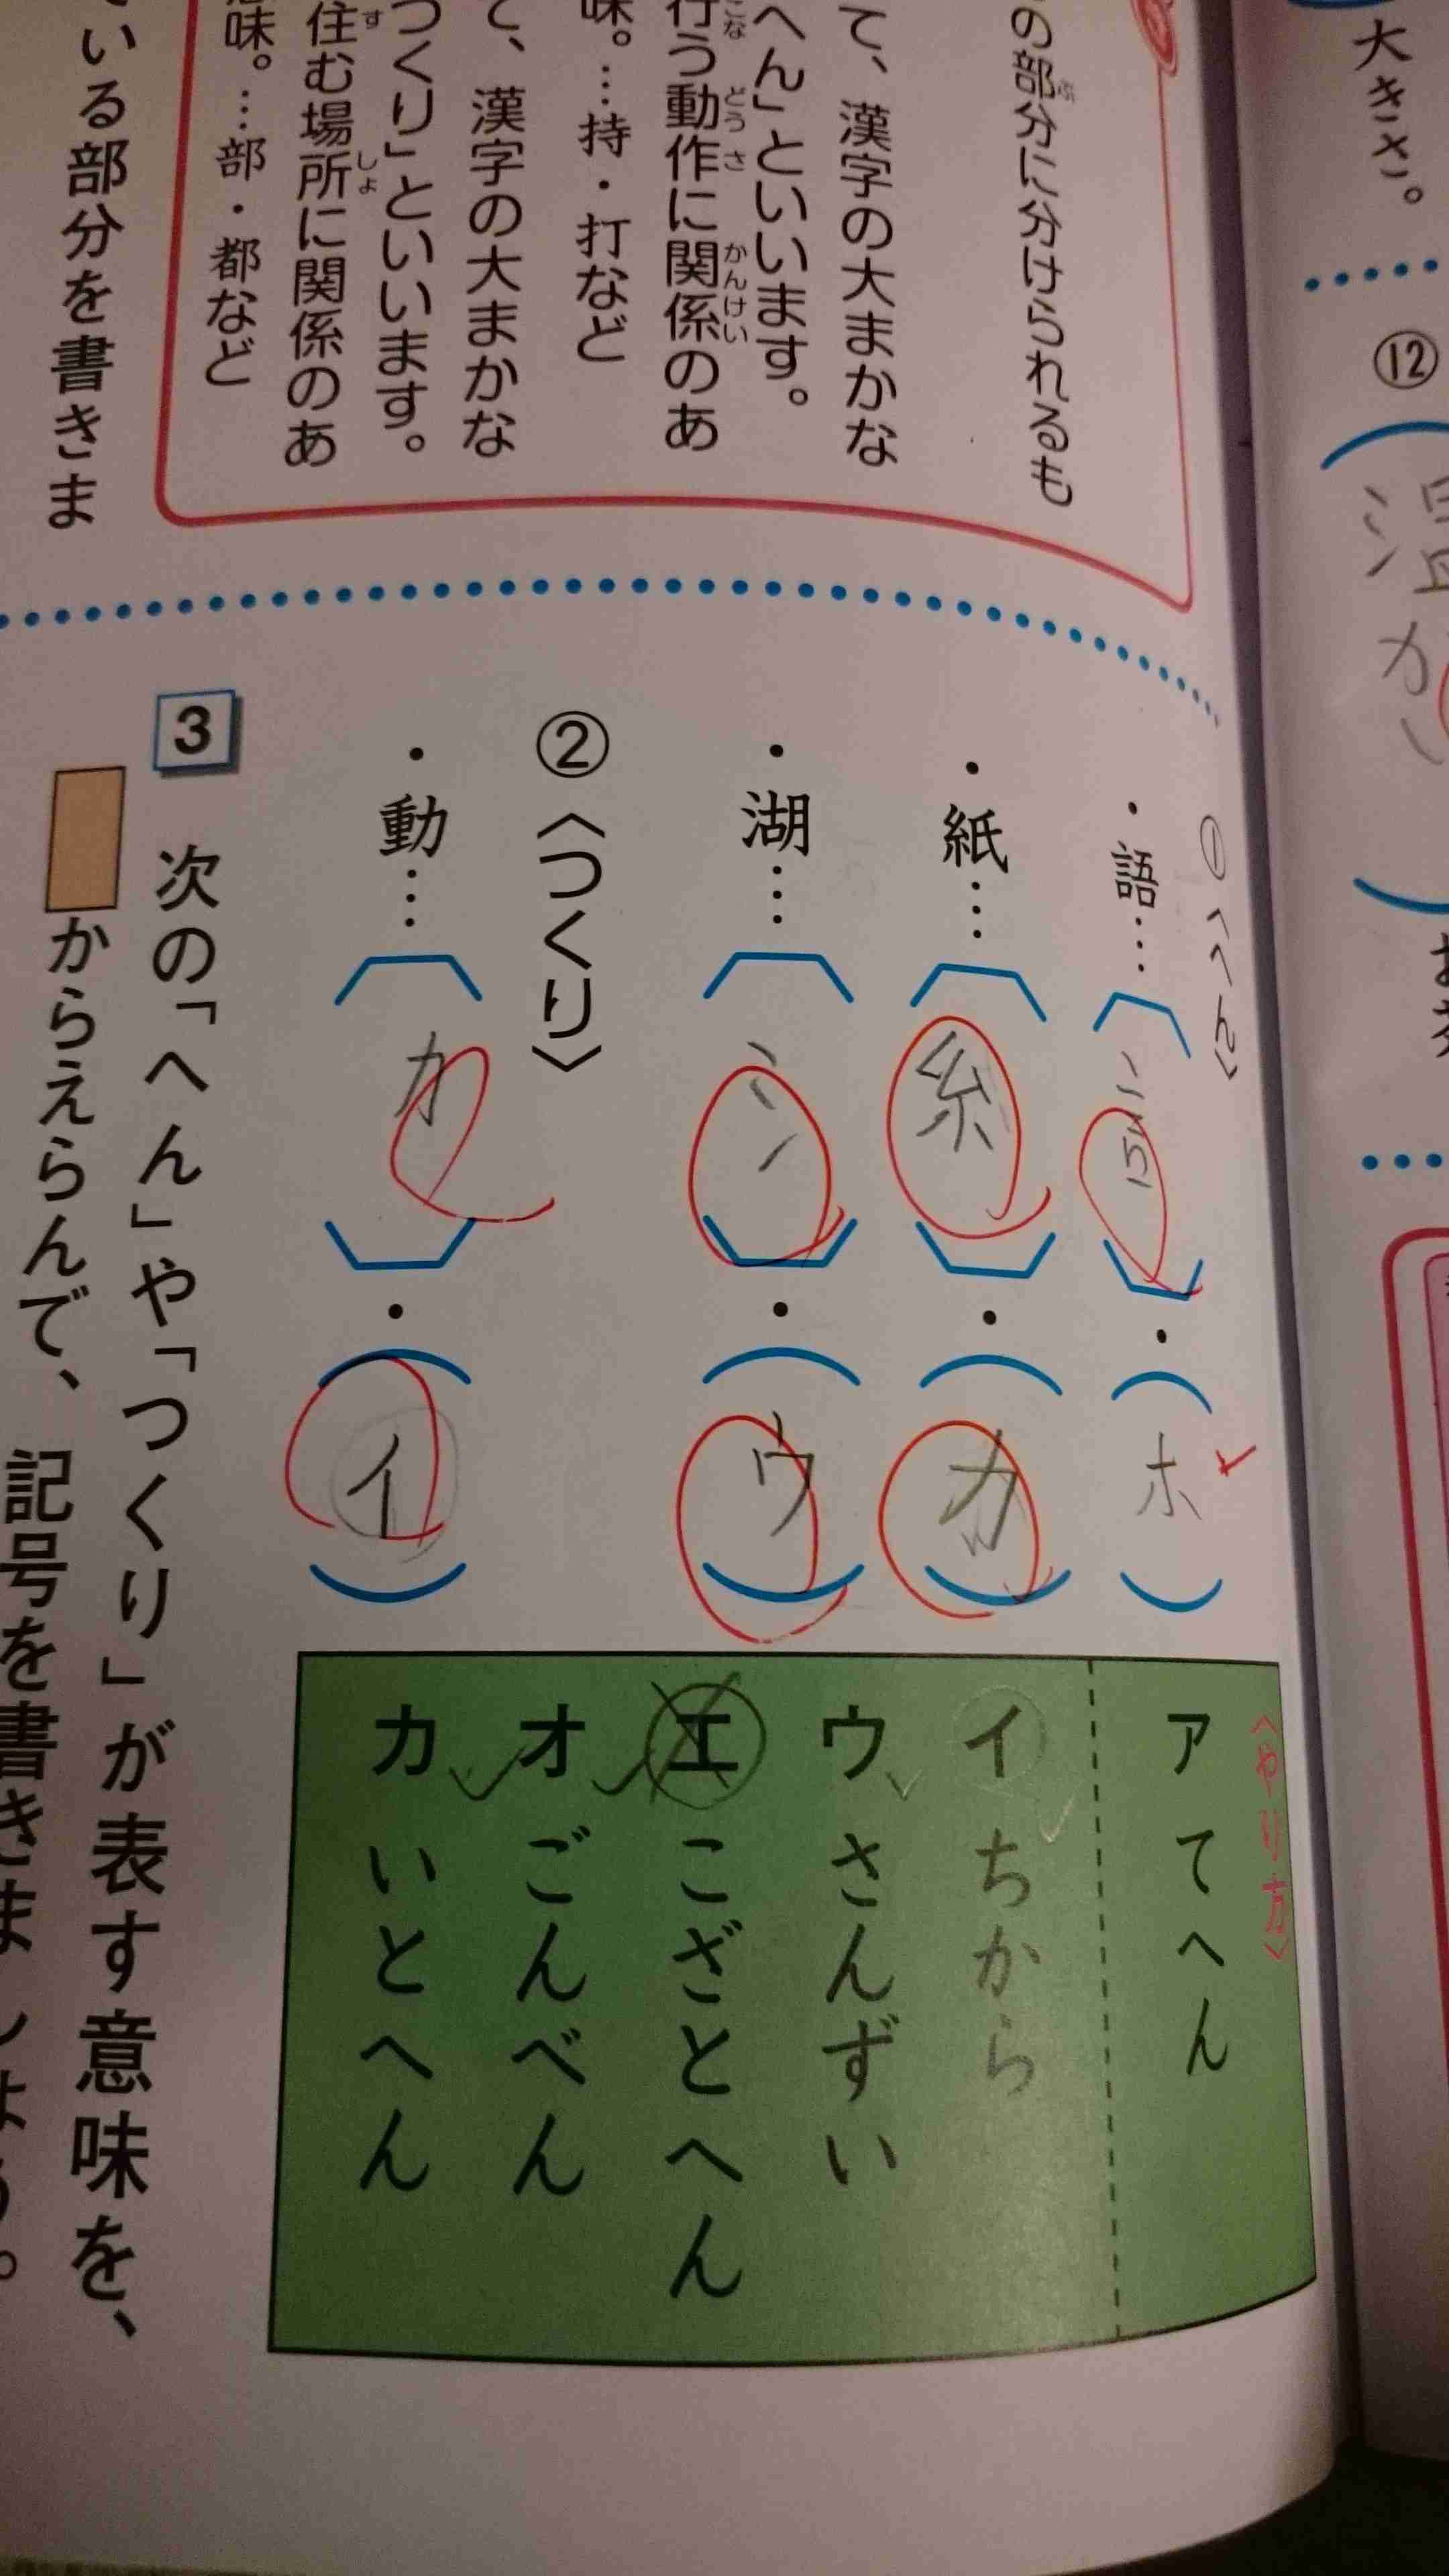 大きさ。
⑫
温かい
の部分に分けられるも
て、漢字の大まかな
へん」といいます。
行う動作に関係のあ
味。…持・打など
て、漢字の大まかな
つくり」といいます。
住む場所に関係のあ
意味。…部・都など
ている部分を書きま
①〈へん〉
・語…〔言〕・(ホ)
・紙…〔糸〕・(カ)
・湖…〔氵〕・(ウ)
②〈つくり〉
・動…〔力〕・(イ)
〈やり方〉
ア てへん
イ ちから
ウ さんずい
エ こざとへん
オ ごんべん
カ いとへん
3 次の「へん」や「つくり」が表す意味を、
からえらんで、記号を書きましょう。